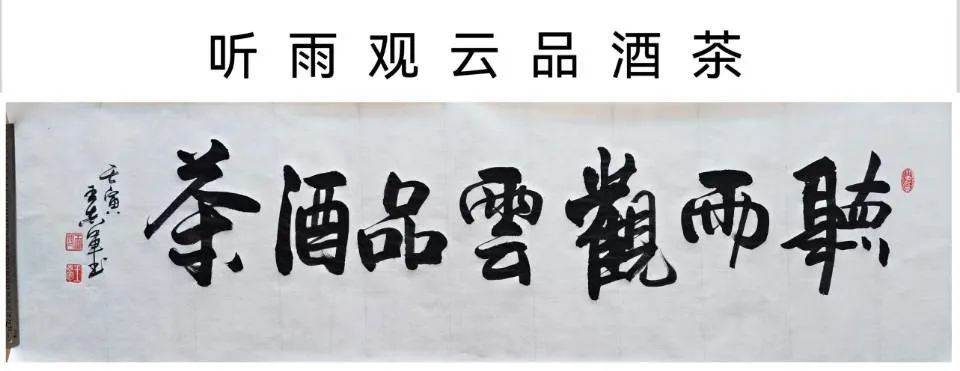 听雨观云品酒茶
聽雨觀雲品酒茶
壬寅